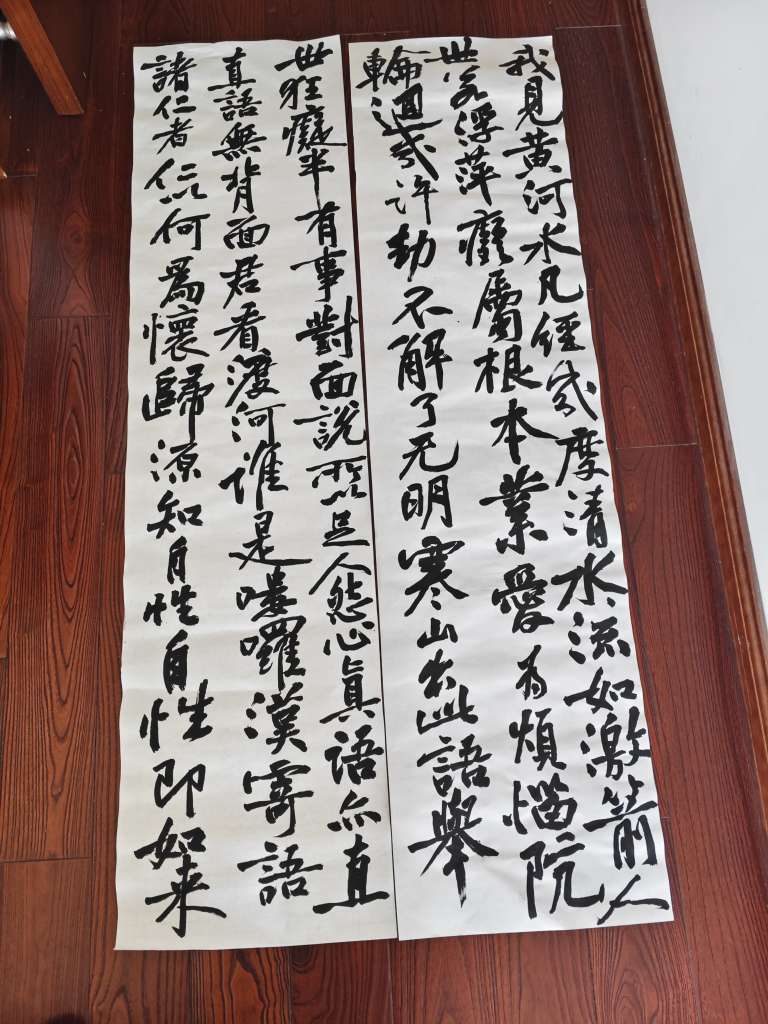 我見黄河水凡經幾度清水流如激箭人
世若浮萍癡屬根本業愛为煩惱阬
輪迴幾許劫不解了无明寒山出此語舉
世狂癡半有事對面說所以足人愁心真語亦直
直語無背面君看渡河誰是嘍囉漢寄語
諸仁者以何爲懷歸源知自性自性即如来